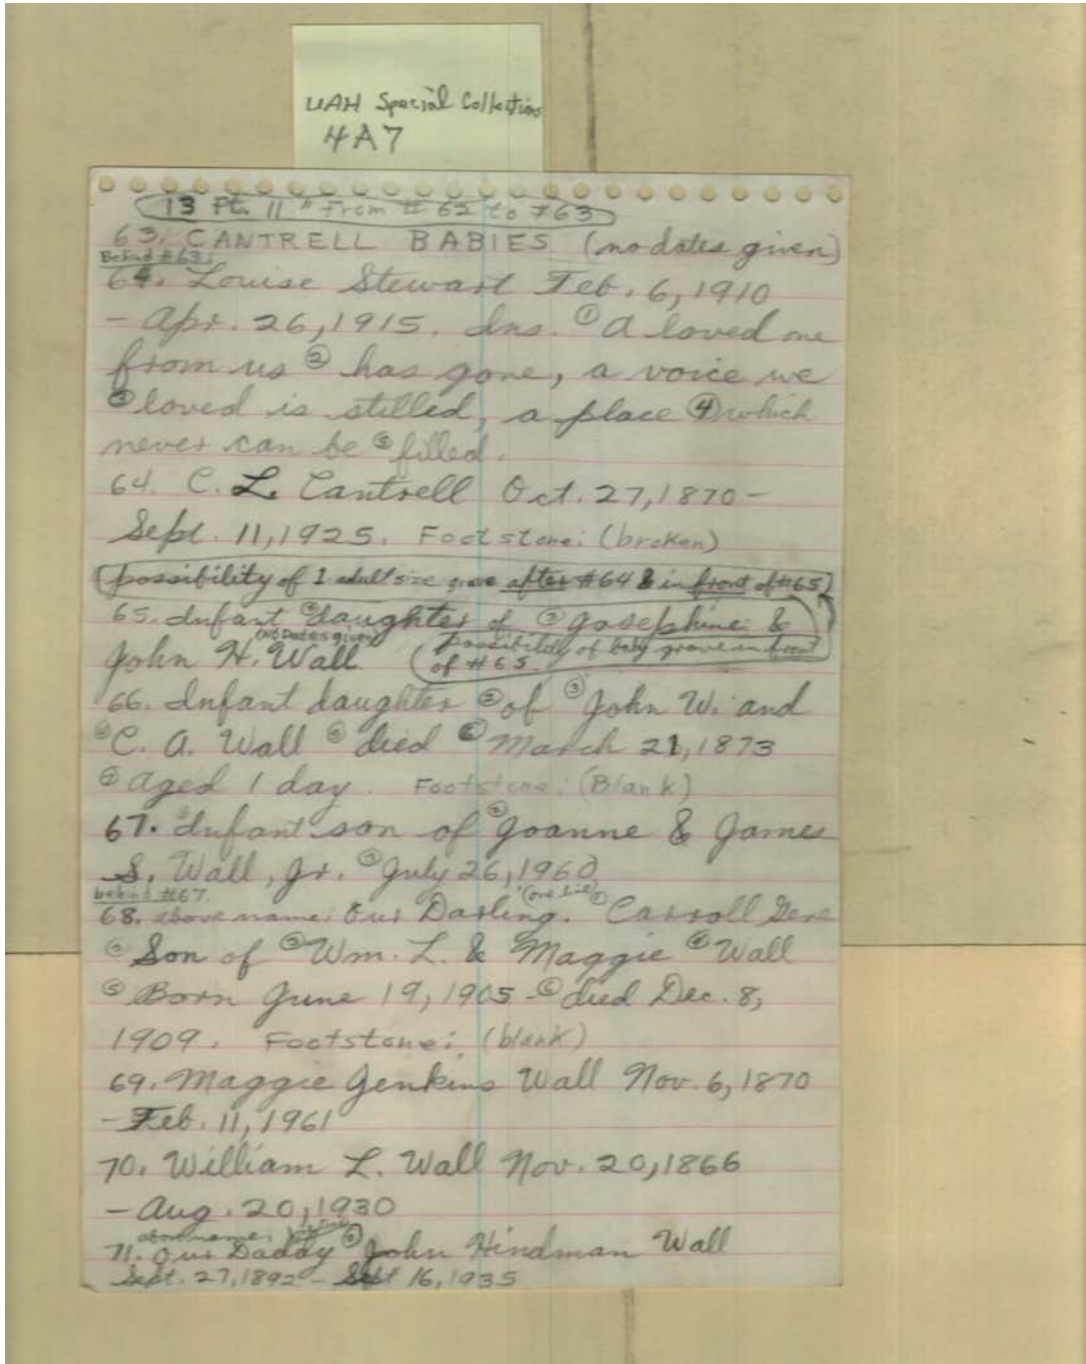 UAH Special Collections
4A7
13 Ft. 11" From # 62 to #63
63. CANTRELL BABIES (no dates given)
Behind #63:
64. Louise Stewart Feb. 6, 1910
- Apr. 26, 1915. Ins. ① A loved one
from us ② has gone, a voice we
③ loved is stilled, a place ④ which
never can be ⑤ filled.
64. C. L. Cantrell Oct. 27, 1870 -
Sept. 11, 1925. Footstone: (broken)
(possibility of 1 adult size grave after #64 & in front of #65)
65. Infant ② daughter of ③ Josephine &
(no Dates given)
John H. Wall.
(possibility of baby grave in front
of #65.
66. Infant daughter ② of ③ John W. and
④ C. A. Wall ⑤ died ⑥ March 21, 1873
⑦ aged 1 day. Footstone: (Blank)
67. Infant son of ② Joanne & James
S. Wall, Jr. ③ July 26, 1960
behind #67.
68. above name: Our Darling. (one line) ① Carroll Gene
② Son of ③ Wm. L. & Maggie ④ Wall
⑤ Born June 19, 1905 - ⑥ died Dec. 8,
1909. Footstone: (blank)
69. Maggie Jenkins Wall Nov. 6, 1870
- Feb. 11, 1961
70. William L. Wall Nov. 20, 1866
- Aug. 20, 1930
above name:
71. Our Daddy John Hindman Wall
Sept. 27, 1892 - Sept 16, 1935